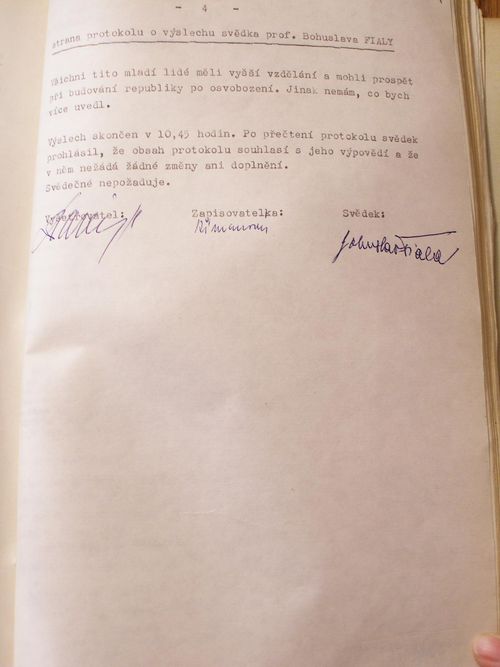 - 4 -
strana protokolu o výslechu svědka prof. Bohuslava FIALY
Všichni tito mladí lidé měli vyšší vzdělání a mohli prospět
při budování republiky po osvobození. Jinak nemám, co bych
více uvedl.
Výslech skončen v 10,45 hodin. Po přečtení protokolu svědek
prohlásil, že obsah protokolu souhlasí s jeho výpovědí a že
v něm nežádá žádné změny ani doplnění.
Svědečné nepožaduje.
Vyšetřovatel: Zapisovatelka: Svědek:
Bohuslav Fiala